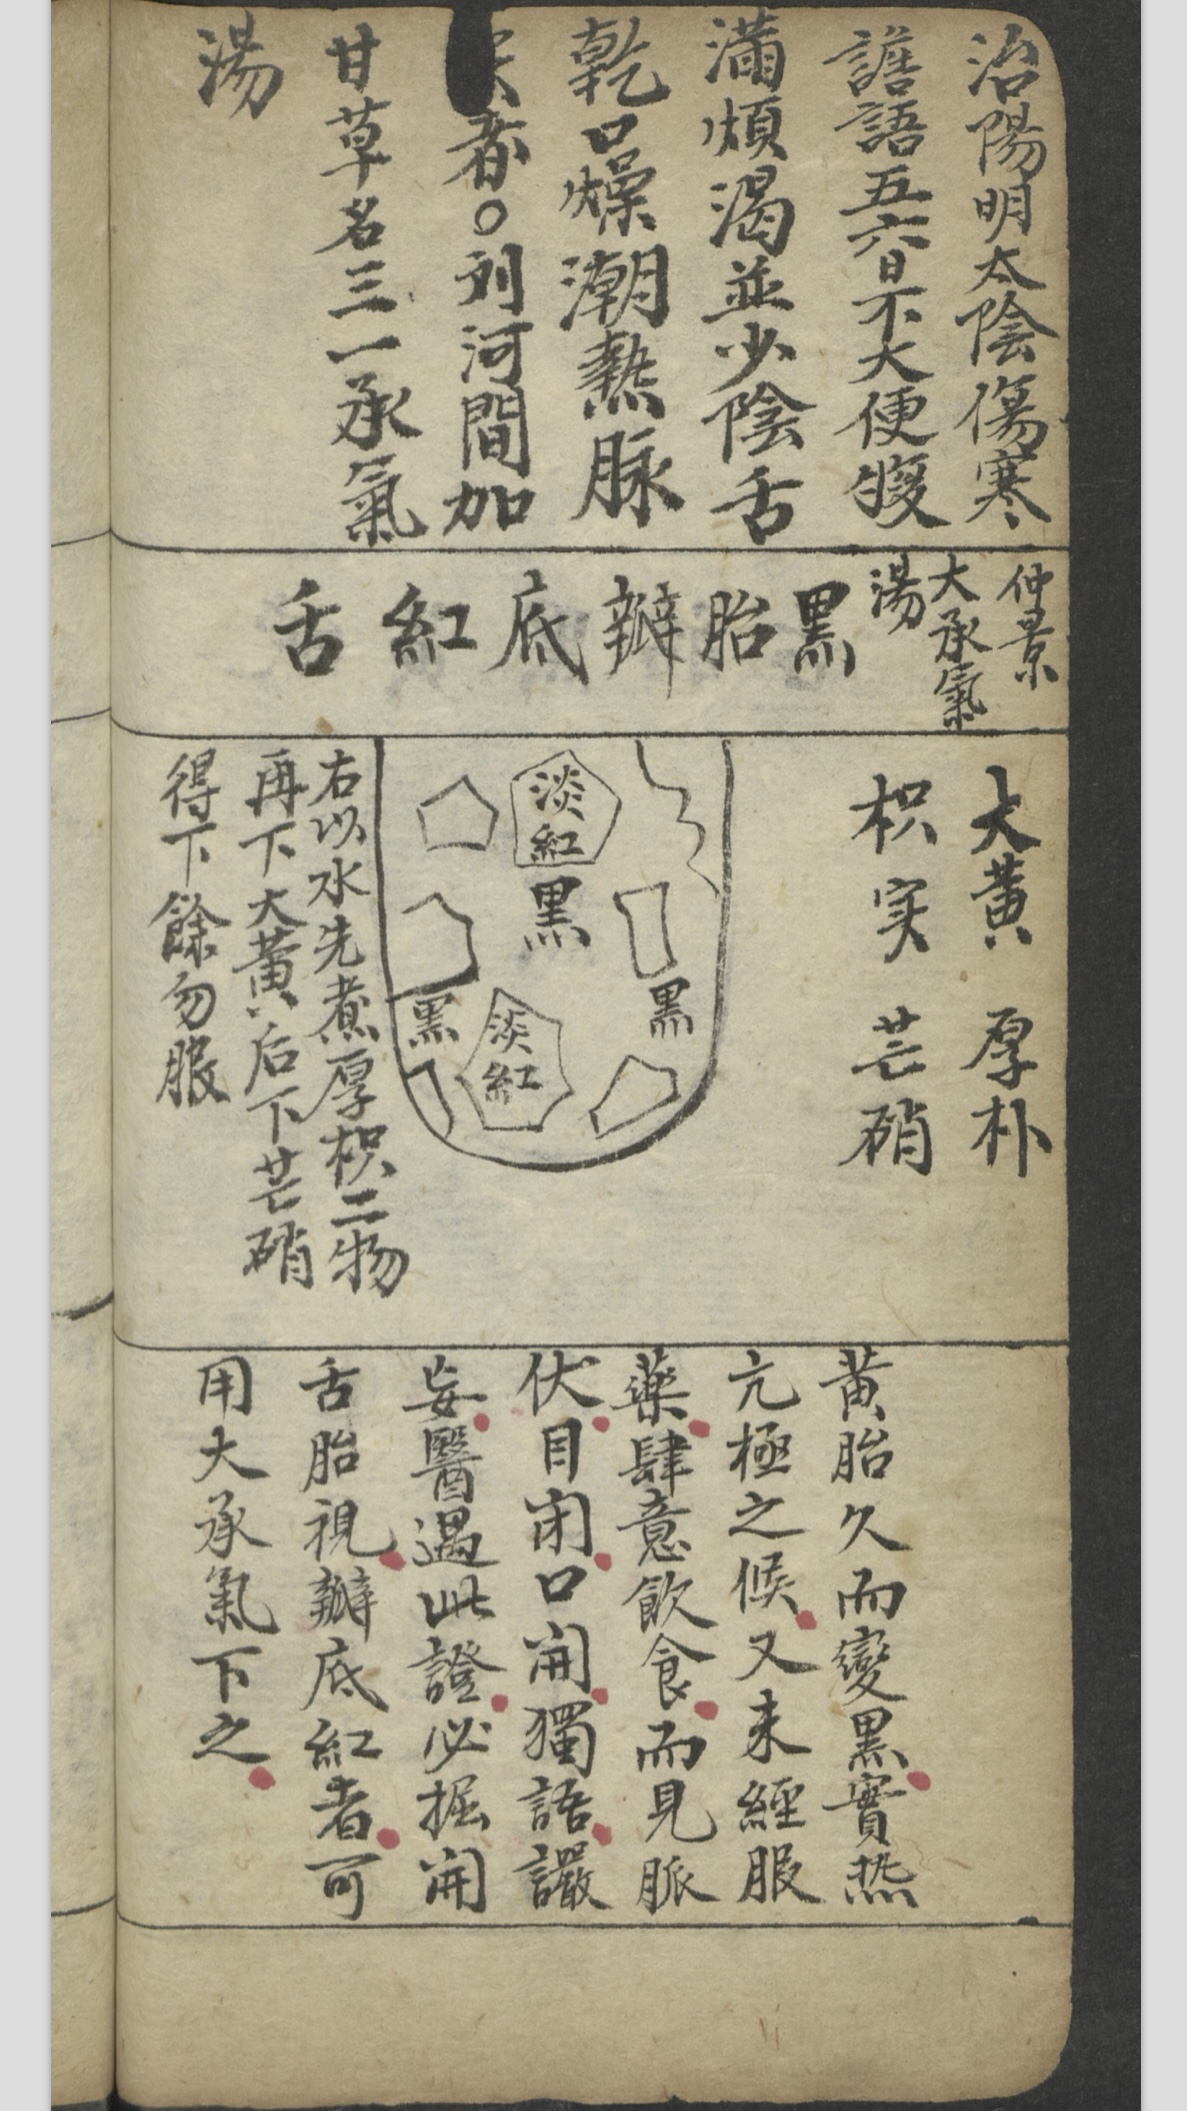 治陽明太陰傷寒
譫語五六日不大便腹
滿煩渴並少陰舌
乾口燥潮熱脉
者○刘河間加
甘草名三一承氣
湯
仲景
大承氣
湯
黑胎瓣底紅舌
大黃 厚朴
枳实 芒硝
淡紅
黑
黑
淡紅
黑
右以水先煮厚枳二物
再下大黃后下芒硝
得下餘勿服
黃胎久而變黑實热
亢極之候又未經服
藥肆意飲食而見脈
伏目闭口開獨語讝
妄醫遇此證必掘開
舌胎視瓣底紅者可
用大承氣下之